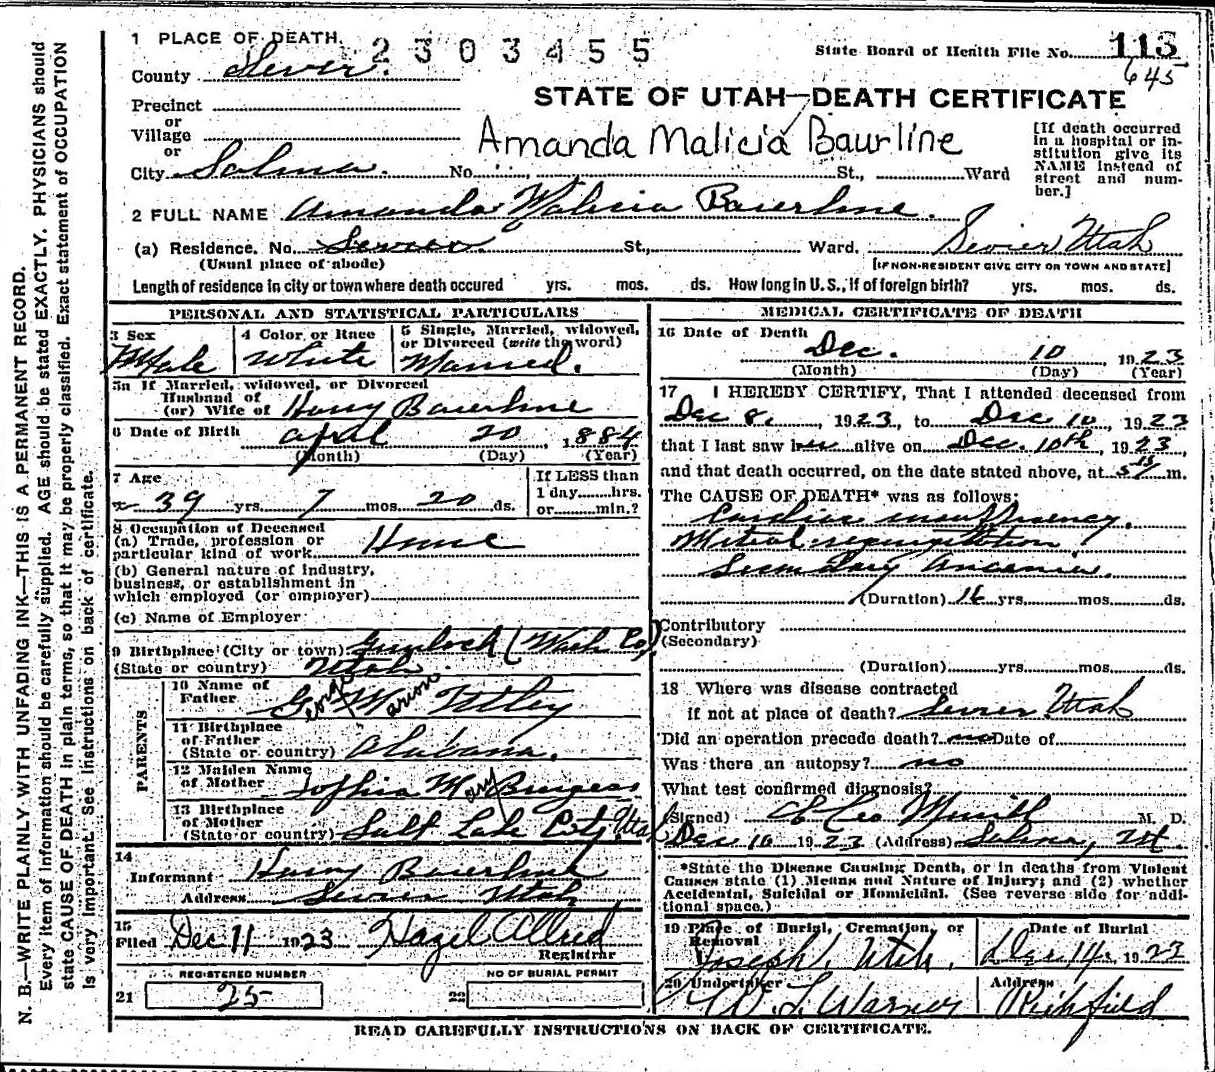 1 PLACE OF DEATH.
2303455
State Board of Health File No. 113
645
County Sevier.
STATE OF UTAH—DEATH CERTIFICATE
Precinct
or
Village
or
Amanda Malicia Baurline
[If death occurred in a hospital or institution give its NAME instead of street and number.]
City Salina. No. St., Ward
2 FULL NAME Amanda Malicia Baierline.
(a) Residence. No. Sevier St., Ward. Sevier Utah
(Usual place of abode) [IF NON-RESIDENT GIVE CITY OR TOWN AND STATE]
Length of residence in city or town where death occured yrs. mos. ds. How long in U.S., if of foreign birth? yrs. mos. ds.
PERSONAL AND STATISTICAL PARTICULARS
3 Sex
4 Color or Race White
5 Single, Married, widowed, or Divorced (write the word)
Married.
5a If Married, widowed, or Divorced
Husband of
(or) Wife of Harry Baierline
6 Date of Birth April 20, 1884
(Month) (Day) (Year)
7 Age
39 yrs. 7 mos. 20 ds.
If LESS than
1 day hrs.
or min.?
8 Occupation of Deceased
(a) Trade, profession or
particular kind of work Home
(b) General nature of industry,
business, or establishment in
which employed (or employer)
(c) Name of Employer
9 Birthplace (City or town) Gunlock (Wash Co)
(State or country) Utah.
PARENTS
10 Name of
Father. George W Marion
11 Birthplace
of Father
(State or country) Alabama.
12 Maiden Name
of Mother Sophia Mary Burgess
13 Birthplace
of Mother
(State or country) Salt Lake City Utah
14
Informant Harry Baierline
Address Sevier Utah
15
Filed Dec 11 1923 Hazel Allred
Registrar
REGISTERED NUMBER
NO OF BURIAL PERMIT
21 25
22
MEDICAL CERTIFICATE OF DEATH
16 Date of Death
Dec. 10, 1923
(Month) (Day) (Year)
17 I HEREBY CERTIFY, That I attended deceased from
Dec 8, 1923, to Dec 10, 1923
that I last saw her alive on Dec. 10th, 1923,
and that death occurred, on the date stated above, at m.
The CAUSE OF DEATH* was as follows:
Cardiac insufficiency.
Mitral regurgitation
Secondary anaemia.
(Duration) 16 yrs. mos. ds.
Contributory
(Secondary)
(Duration) yrs. mos. ds.
18 Where was disease contracted
if not at place of death? Sevier Utah
Did an operation precede death? no Date of
Was there an autopsy? no
What test confirmed diagnosis?
(Signed) M. D.
Dec 10 1923 (Address) Salina, Ut.
*State the Disease Causing Death, or in deaths from Violent
Causes state (1) Means and Nature of Injury; and (2) whether
Accidental, Suicidal or Homicidal. (See reverse side for addi-
tional space.)
19 Place of Burial, Cremation, or
Removal
Joseph, Utah.
Date of Burial
Dec 14, 1923
20 Undertaker
W. L. Warner
Address
Richfield
READ CAREFULLY INSTRUCTIONS ON BACK OF CERTIFICATE.
N. B.—WRITE PLAINLY WITH UNFADING INK—THIS IS A PERMANENT RECORD.
Every item of information should be carefully supplied. AGE should be stated EXACTLY. PHYSICIANS should
state CAUSE OF DEATH in plain terms, so that it may be properly classified. Exact statement of OCCUPATION
is very important. See instructions on back of certificate.